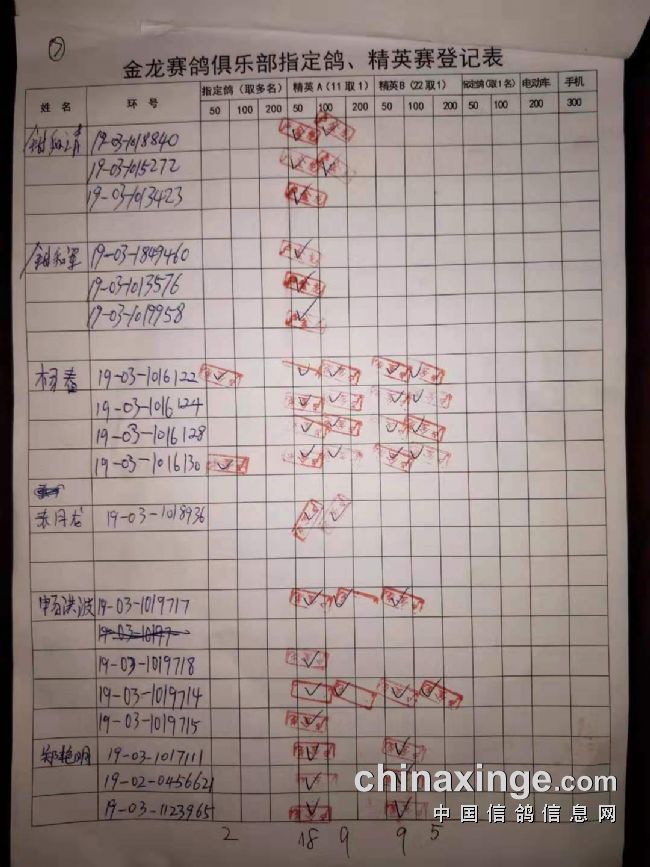 ⑦
金龙赛鸽俱乐部指定鸽、精英赛登记表
姓 名 环 号 指定鸽（取多名） 精英A（11取1） 精英B（22取1） 指定鸽（取1名） 电动车 手机
50 100 200 50 100 200 50 100 200 50 100 200 300
19-03-1018840
19-03-1015272
19-03-1013423
19-03-1849460
19-03-1013576
19-03-1019958
杨春 19-03-1016122
19-03-1016124
19-03-1016128
19-03-1016130
19-03-1018936
洪波 19-03-1019717
19-03-10197
19-03-1019718
19-03-1019714
19-03-1019715
郑艳明 19-03-1017111
19-02-0456621
19-03-1123965
2 18 9 9 5
chinaxinge.com
中国信鸽信息网